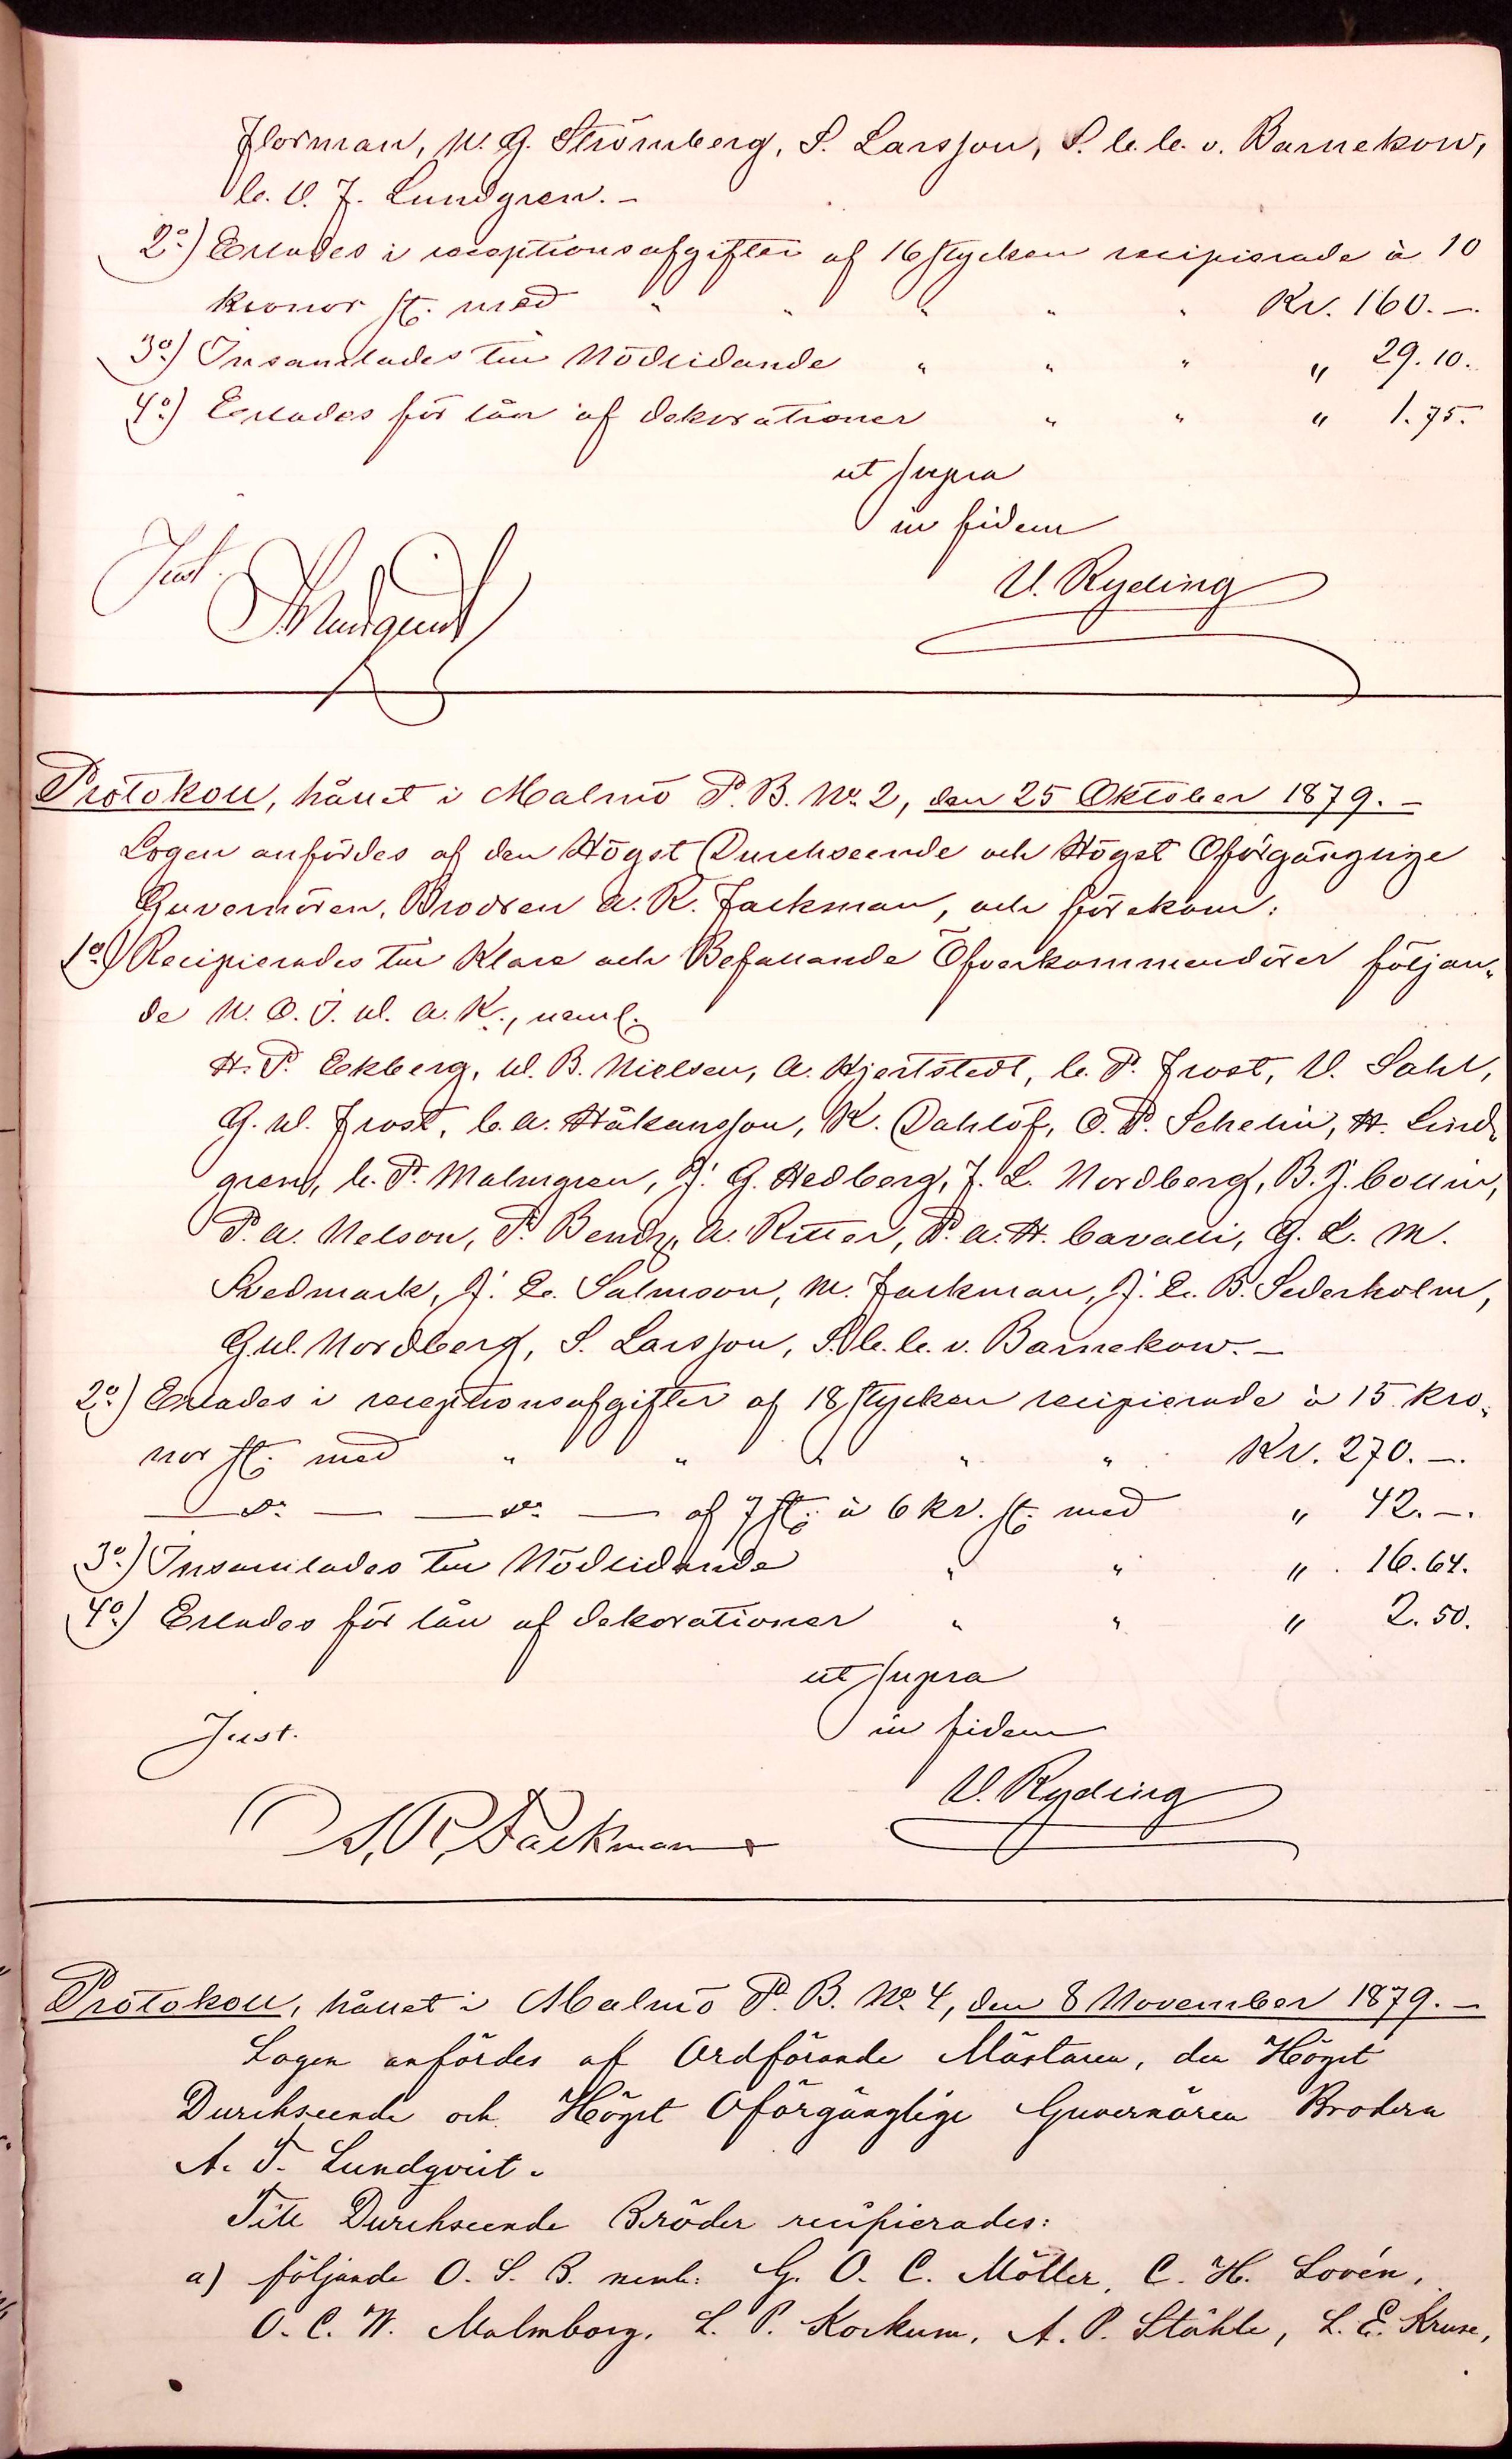 Florman, W. G. Strömberg, S. Larsson, S. C. C. v. Barnekow,
C. V. F. Lundgren. –
2o.) Erlades i receptionsafgifter af 16 stycken recipierade à 10
kronor st. med " " " " " Kr. 160. –.
3o.) Insamlades till Nödlidande " " " " 29.10.
4o.) Erlades för lån af dekorationer " " " 1.75.
ut supra
in fidem
Just.
V. Ryding
Protokoll, hållet i Malmö P. B. No. 2, den 25 Oktober 1879. –
Logen anfördes af den Högst Durchseende och Högst Oförgänglige
Guvernören, Brodren A. R. Fackman, och förekom:
1o.) Recipierades till Klare och Befallande Öfverkommendörer följan-
de W. O. I. M. A. K., neml.
H. P. Ekberg, M. B. Nielsen, A. Hjertstedt, C. P. Frost, V. Sahl,
G. M. Frost, C. A. Håkansson, K. Dahlöf, O. P. Schelin, H. Lind-
gren, C. P. Malmgren, J. G. Hedberg, F. L. Nordberg, B. J. Collin,
P. A. Nelson, P. Bendz, A. Ritter, P. A. H. Cavalli, G. L. M.
Svedmark, J. E. Salmson, M. Fackman, J. E. B. Sederholm,
G. M. Nordberg, S. Larsson, S. C. C. v. Barnekow. –
2o.) Erlades i receptionsafgifter af 18 stycken recipierade à 15 kro-
nor st. med " " " " " Kr. 270. –.
– do. – – do. – af 7 st. à 6 kr. st. med " 42. –.
3o.) Insamlades till Nödlidande " " " 16.64.
4o.) Erlades för lån af dekorationer " " " 2.50.
ut supra
Just. in fidem
A. R. Fackman V. Ryding
Protokoll, hållet i Malmö P. B. No. 4, den 8 November 1879. –
Logen anfördes af Ordförande Mästaren, den Högst
Durchseende och Högst Oförgänglige Guvernören Brodern
A. T. Lundqvist.
Till Durchseende Bröder recipierades:
a) följande O. S. B. neml: G. O. C. Möller, C. H. Lovén,
O. C. W. Malmborg, L. P. Korkum, A. P. Ståhle, L. E. Kruse,